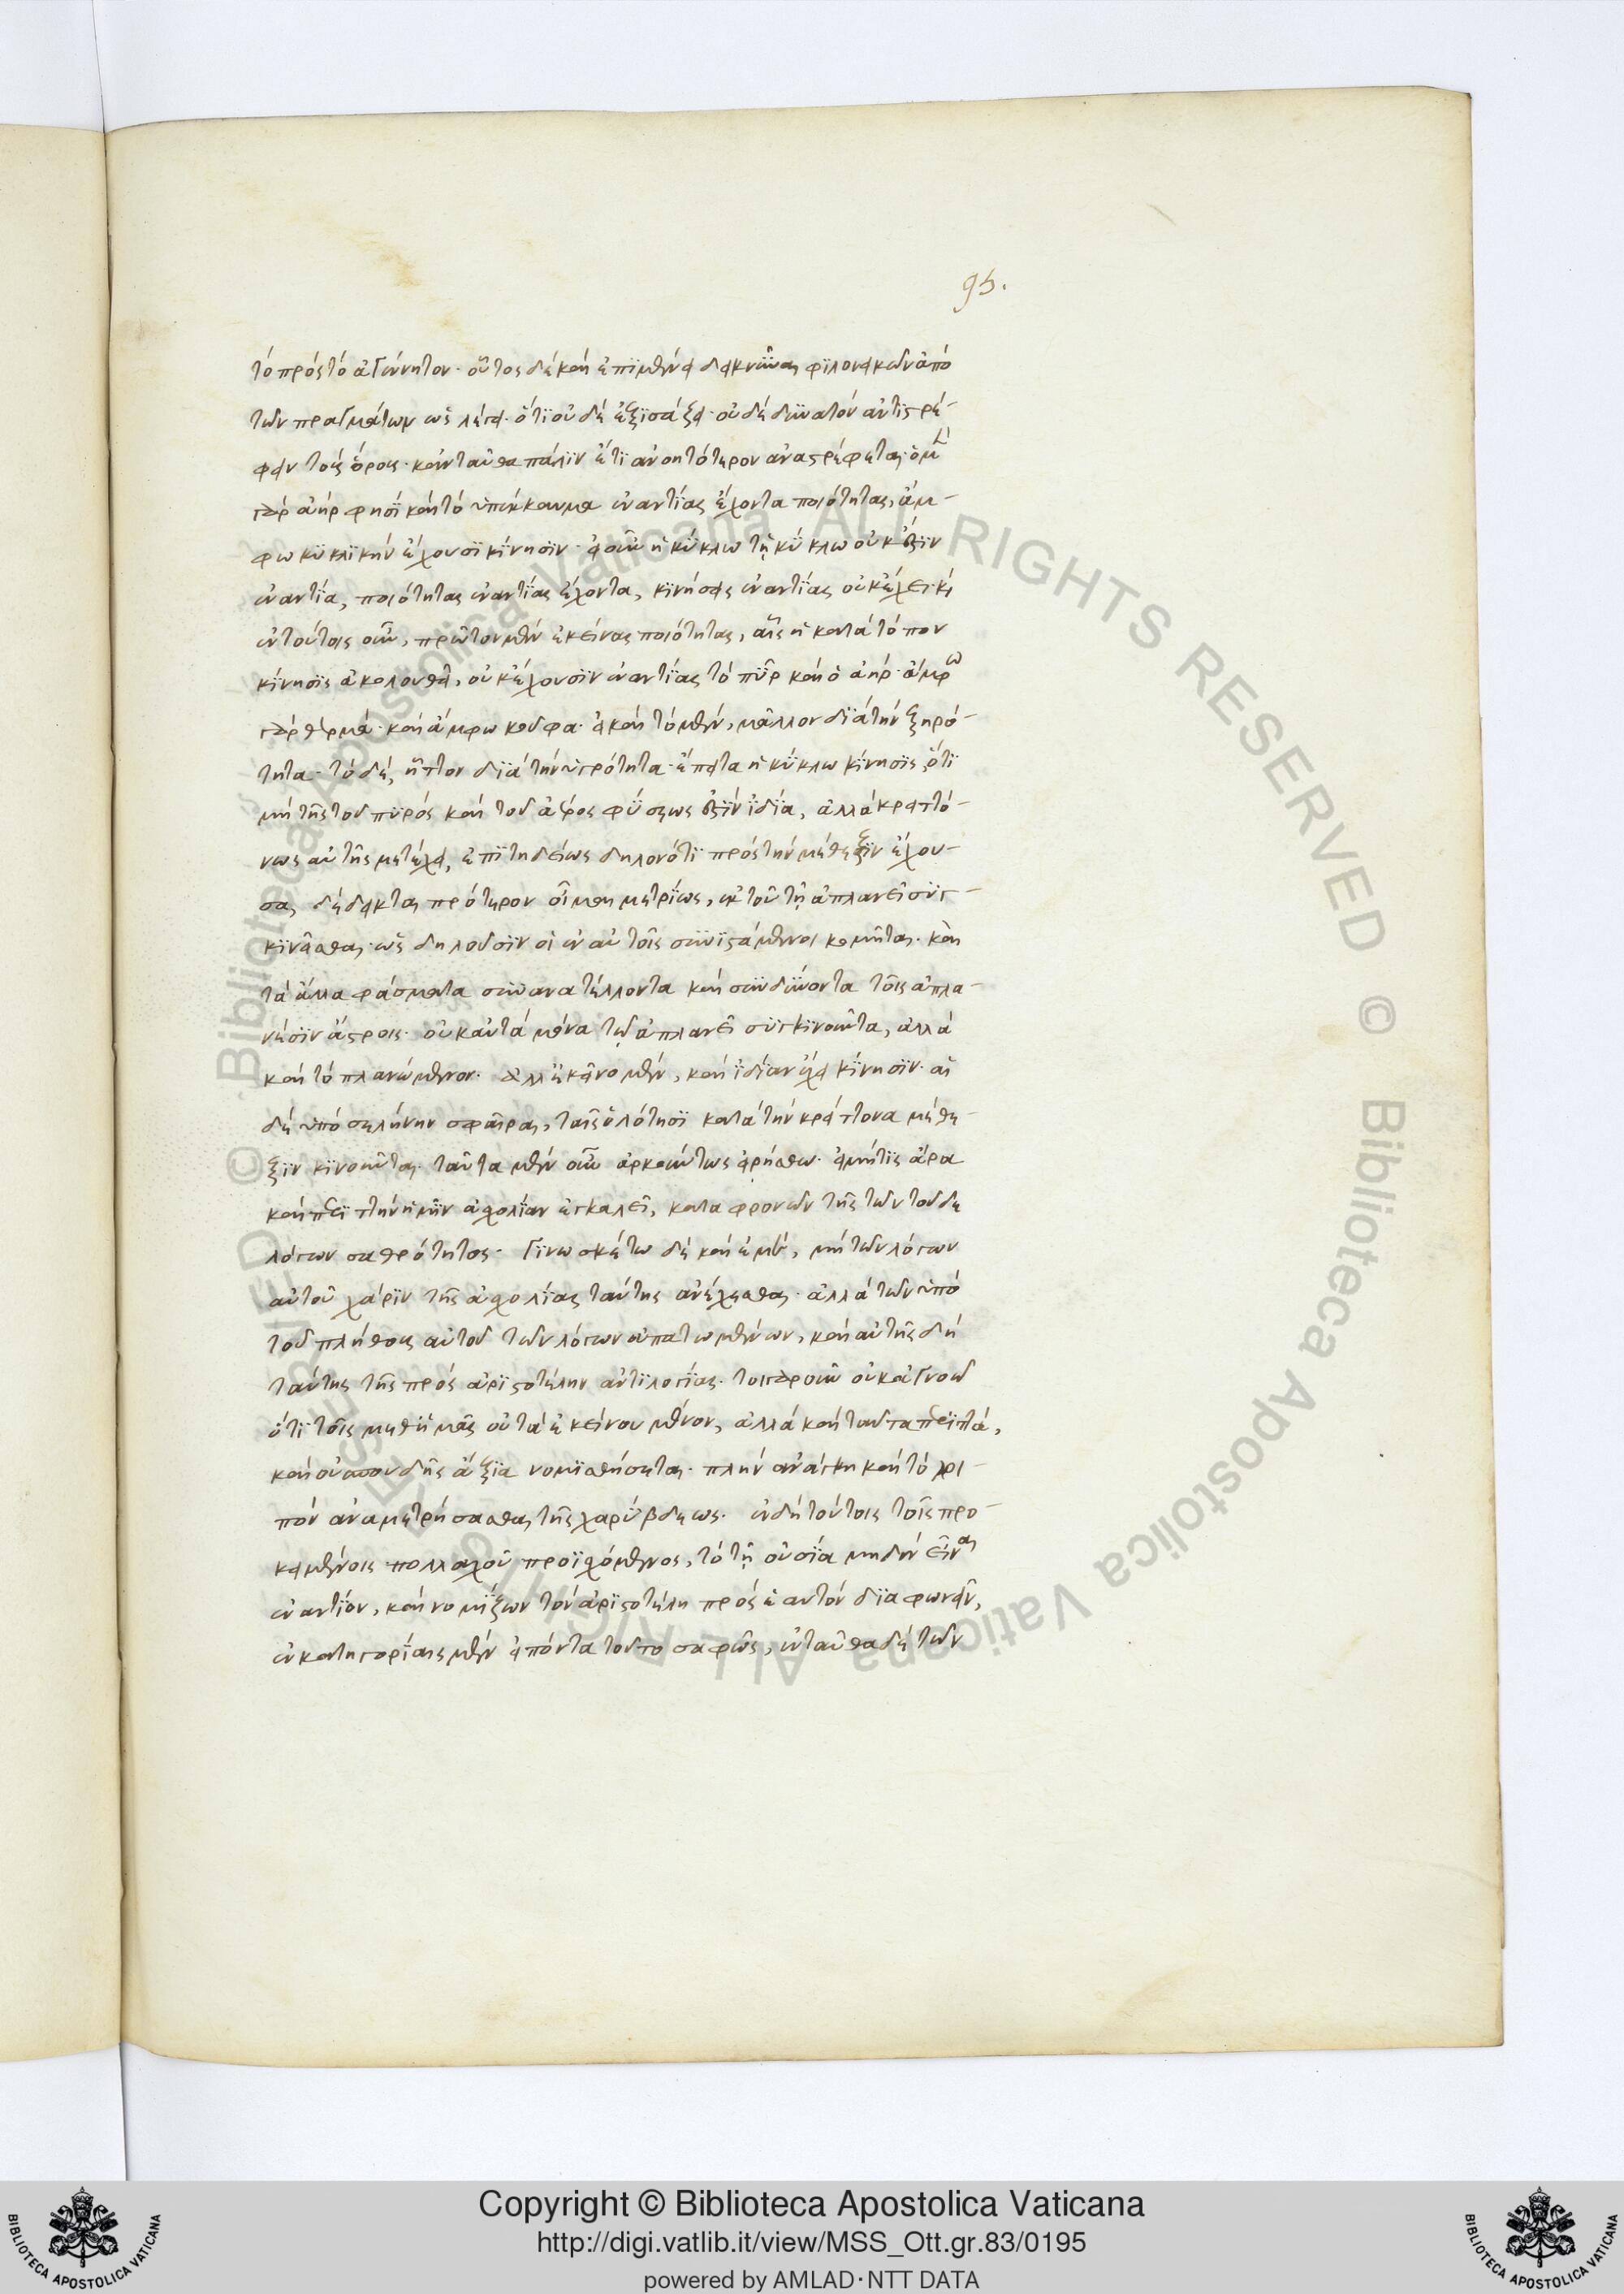 95.
τὸ πρὸς τὸ ἀγέννητον. οὗτος δὲ καὶ ἐπιμένει δεικνῦναι φιλονεικῶν ἀπὸ
τῶν πραγμάτων ὡς λέγει. ὅτι οὐδὲ ἐξισάζει. οὐδὲ δυνατὸν ἀντιστρέ-
φειν τοῖς ὅροις. κἀνταῦθα πάλιν ἔτι ἀνοητότερον ἀναστρέφεται. ὁ μὲν
γὰρ ἀὴρ φησὶ καὶ τὸ ὑπέκκαυμα ἐναντίας ἔχοντα ποιότητας, ἄμ-
φω κυκλικὴν ἔχουσι κίνησιν. εἰ οὖν ἡ κύκλω τῇ κύκλω οὐκ ἔστιν
ἐναντία, ποιότητας ἐναντίας ἔχοντα, κινήσεις ἐναντίας οὐκ ἔχει. καὶ
ἐν τούτοις οὖν, πρῶτον μὲν ἐκείνας ποιότητας, αἷς ἡ κατὰ τόπον
κίνησις ἀκολουθεῖ, οὐκ ἔχουσιν ἐναντίας τὸ πῦρ καὶ ὁ ἀήρ. ἄμφω
γὰρ θερμά. καὶ ἄμφω κοῦφα. εἰ καὶ τὸ μὲν, μᾶλλον διὰ τὴν ξηρό-
τητα. τὸ δὲ, ἧττον διὰ τὴν ὑγρότητα. ἔπειτα ἡ κύκλω κίνησις, ὅτι
μὴ τῆς τοῦ πυρὸς καὶ τοῦ ἀέρος φύσεως ἐστὶν ἰδία, ἀλλὰ κρειττό-
νως αὐτῆς μετέχει, ἐπιτηδείως δηλονότι πρὸς τὴν μέθεξιν ἔχου-
σα, δέδεικται πρότερον οἶμαι μετρίως, ἐκ τοῦ τῇ ἀπλανεῖ συγ-
κινεῖσθαι. ὡς δηλοῦσιν οἱ ἐν αὐτοῖς συνιστάμενοι κομῆται. καὶ
τὰ ἄλλα φάσματα συνανατέλλοντα καὶ συνδύνοντα τοῖς ἀπλα-
νέσιν ἄστροις. οὐ ταῦτα μόνα τῷ ἀπλανεῖ συγκινοῦνται, ἀλλὰ
καὶ τὸ πλανώμενον. ἀλλ' ἐκεῖνο μὲν, καὶ ἰδίαν ἔχει κίνησιν. αἱ
δὲ ὑπὸ σελήνην σφαῖραι, ταῖς ὁλότησι κατὰ τὴν κρείττονα μέθε-
ξιν κινοῦνται. ταῦτα μὲν οὖν ἀρκούντως εἰρήσθω. εἰ μή τις ἄρα
καὶ περιττὴν ἡμῖν ἀσχολίαν ἐγκαλεῖ, καταφρονῶν τῆς τῶν τοῦδε
λόγων σαθρότητος. Γινωσκέτω δὲ καὶ ἐμὲ, μὴ τῶν λόγων
αὐτοῦ χάριν τῆς ἀσχολίας ταύτης ἀνέχεσθαι. ἀλλὰ τῶν ὑπὸ
τοῦ πλήθους αὐτοῦ τῶν λόγων ἀπατωμένων, καὶ αὐτῆς δὴ
ταύτης τῆς πρὸς ἀριστοτέλην ἀντιλογίας. τοιγαροῦν οὐκ ἀγνοῶ
ὅτι τοῖς μεθ' ἡμᾶς οὐ τὰ ἐκείνου μόνον, ἀλλὰ καὶ ταῦτα περιττὰ,
καὶ οὐ σπουδῆς ἄξια νομισθήσεται. πλὴν ἀνάγκη καὶ τὸ λοι-
πὸν ἀναμετρήσασθαι τῆς χαρύβδεως. ἐν δὴ τούτοις τοῖς προ-
κειμένοις πολλαχοῦ προϊσχόμενος, τὸ τῇ οὐσία μηδὲν εἶναι
ἐναντίον, καὶ νομίζων τὸν ἀριστοτέλη πρὸς ἑαυτὸν διαφωνεῖν,
ἐν κατηγορίαις μὲν εἰπόντα τοῦτο σαφῶς, ἐνταῦθα δὲ τῶν
Copyright © Biblioteca Apostolica Vaticana
http://digi.vatlib.it/view/MSS_Ott.gr.83/0195
powered by AMLAD·NTT DATA
BIBLIOTECA APOSTOLICA VATICANA
BIBLIOTECA APOSTOLICA VATICANA
© Biblioteca Apostolica Vaticana ALL RIGHTS RESERVED © Biblioteca Apostolica Vaticana ALL RIGHTS RESERVED